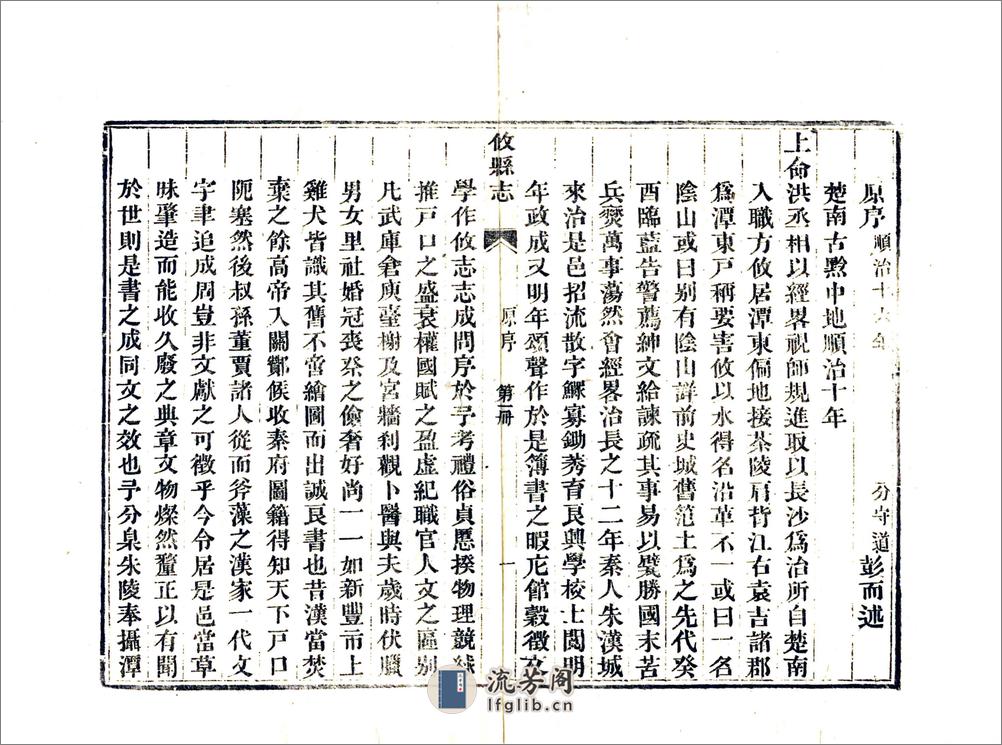 原序 順治十六年 分守道 彭而述
楚南古黔中地順治十年
上命洪丞相以經畧視師規進取以長沙爲治所自楚南
入職方攸居潭東偏地接茶陵肩背江右袁吉諸郡
爲潭東戸稱要害攸以水得名沿革不一或曰一名
陰山或曰别有陰山詳前史城舊范土爲之先代癸
酉臨藍告警薦紳文給諫疏其事易以甓勝國末苦
兵燹萬事蕩然會經畧治長之十二年秦人朱漢城
來治是邑招流散字鰥寡鋤莠育良興學校士閲明
年政成又明年頌聲作於是簿書之暇庀館穀徵文
攸縣志 原序 第一册 一
學作攸志志成問序於予考禮俗貞慝揆物理競絿
推戸口之盛衰權國賦之盈虚紀職官人文之區别
凡武庫倉庾臺榭及宮牆刹觀卜醫與夫歲時伏臘
男女里社婚冠喪祭之儉奢好尚一一如新豐市上
雞犬皆識其舊不啻繪圖而出誠良書也昔漢當焚
棄之餘高帝入關酇候收秦府圖籍得知天下戸口
阨塞然後叔孫董賈諸人從而斧藻之漢家一代文
字聿追成周豈非文獻之可徵乎今令居是邑當草
昧肇造而能收久廢之典章文物燦然釐正以有聞
於世則是書之成同文之效也予分臬朱陵奉攝潭
流芳阁
lfglib.cn